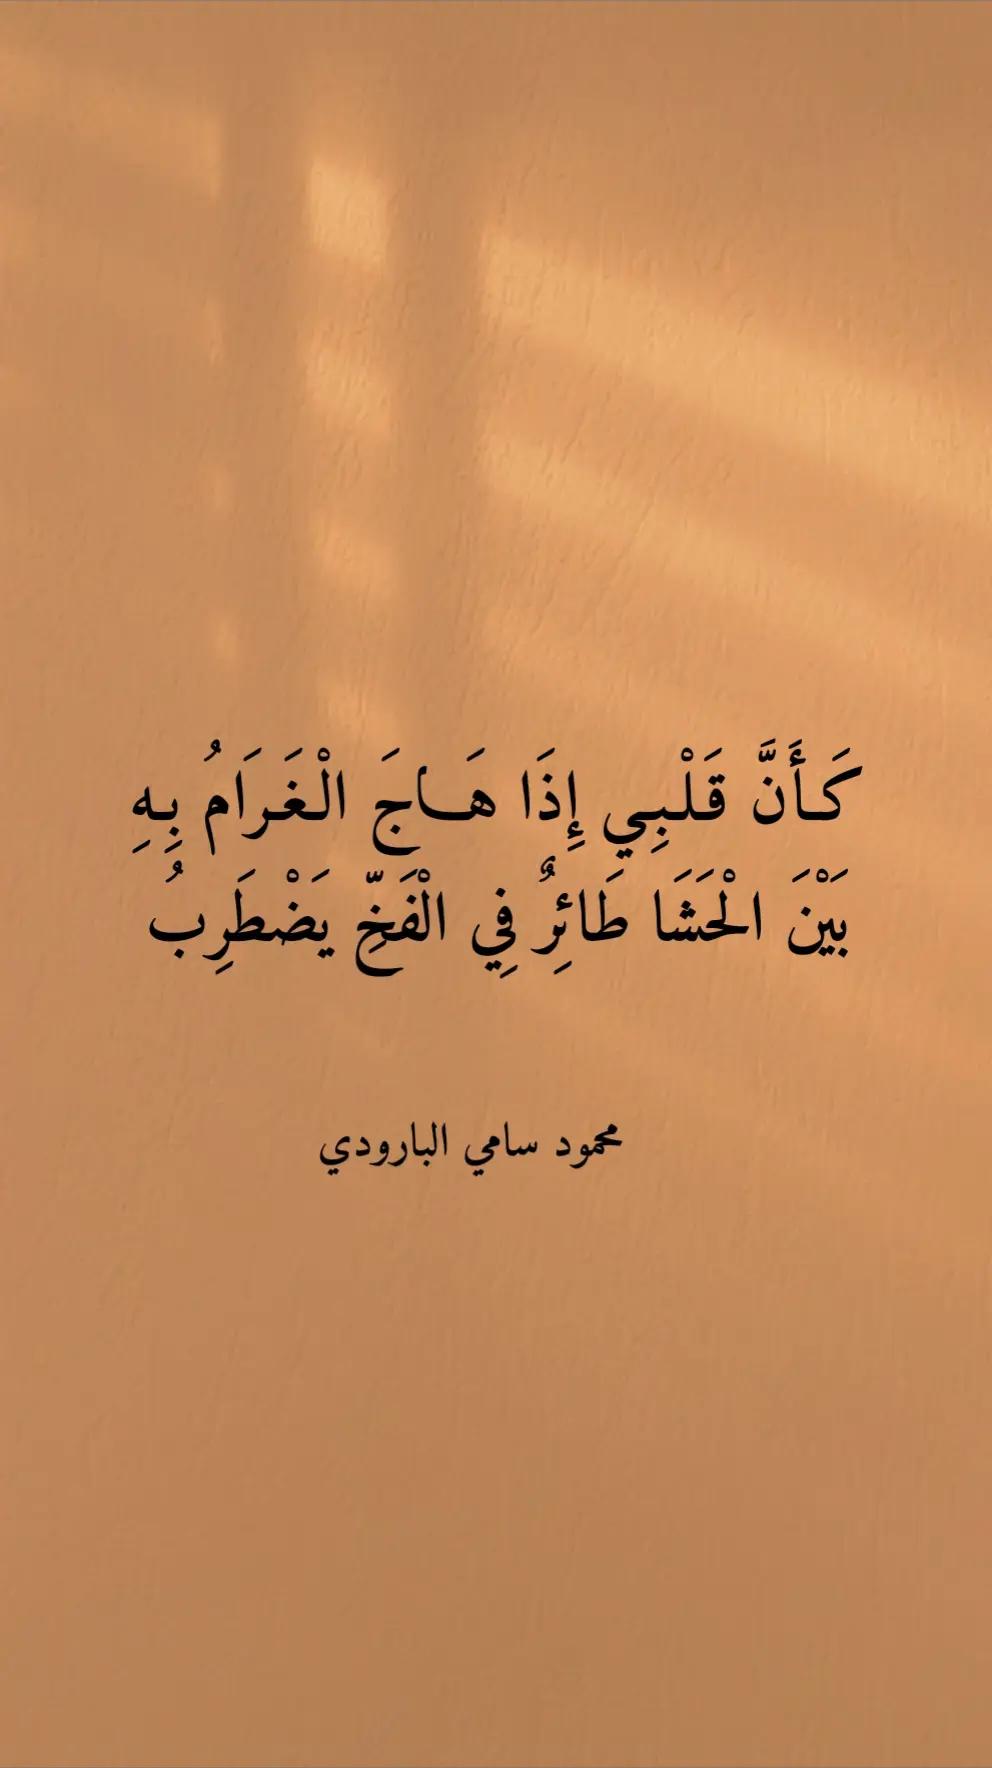 كَـأَنَّ قَلْبِي إِذَا هَـــاجَ الْغَرَامُ بِهِ
بَيْنَ الْحَشَا طَائِرٌ فِي الْفَخِّ يَضْطَرِبُ
محمود سامي البارودي